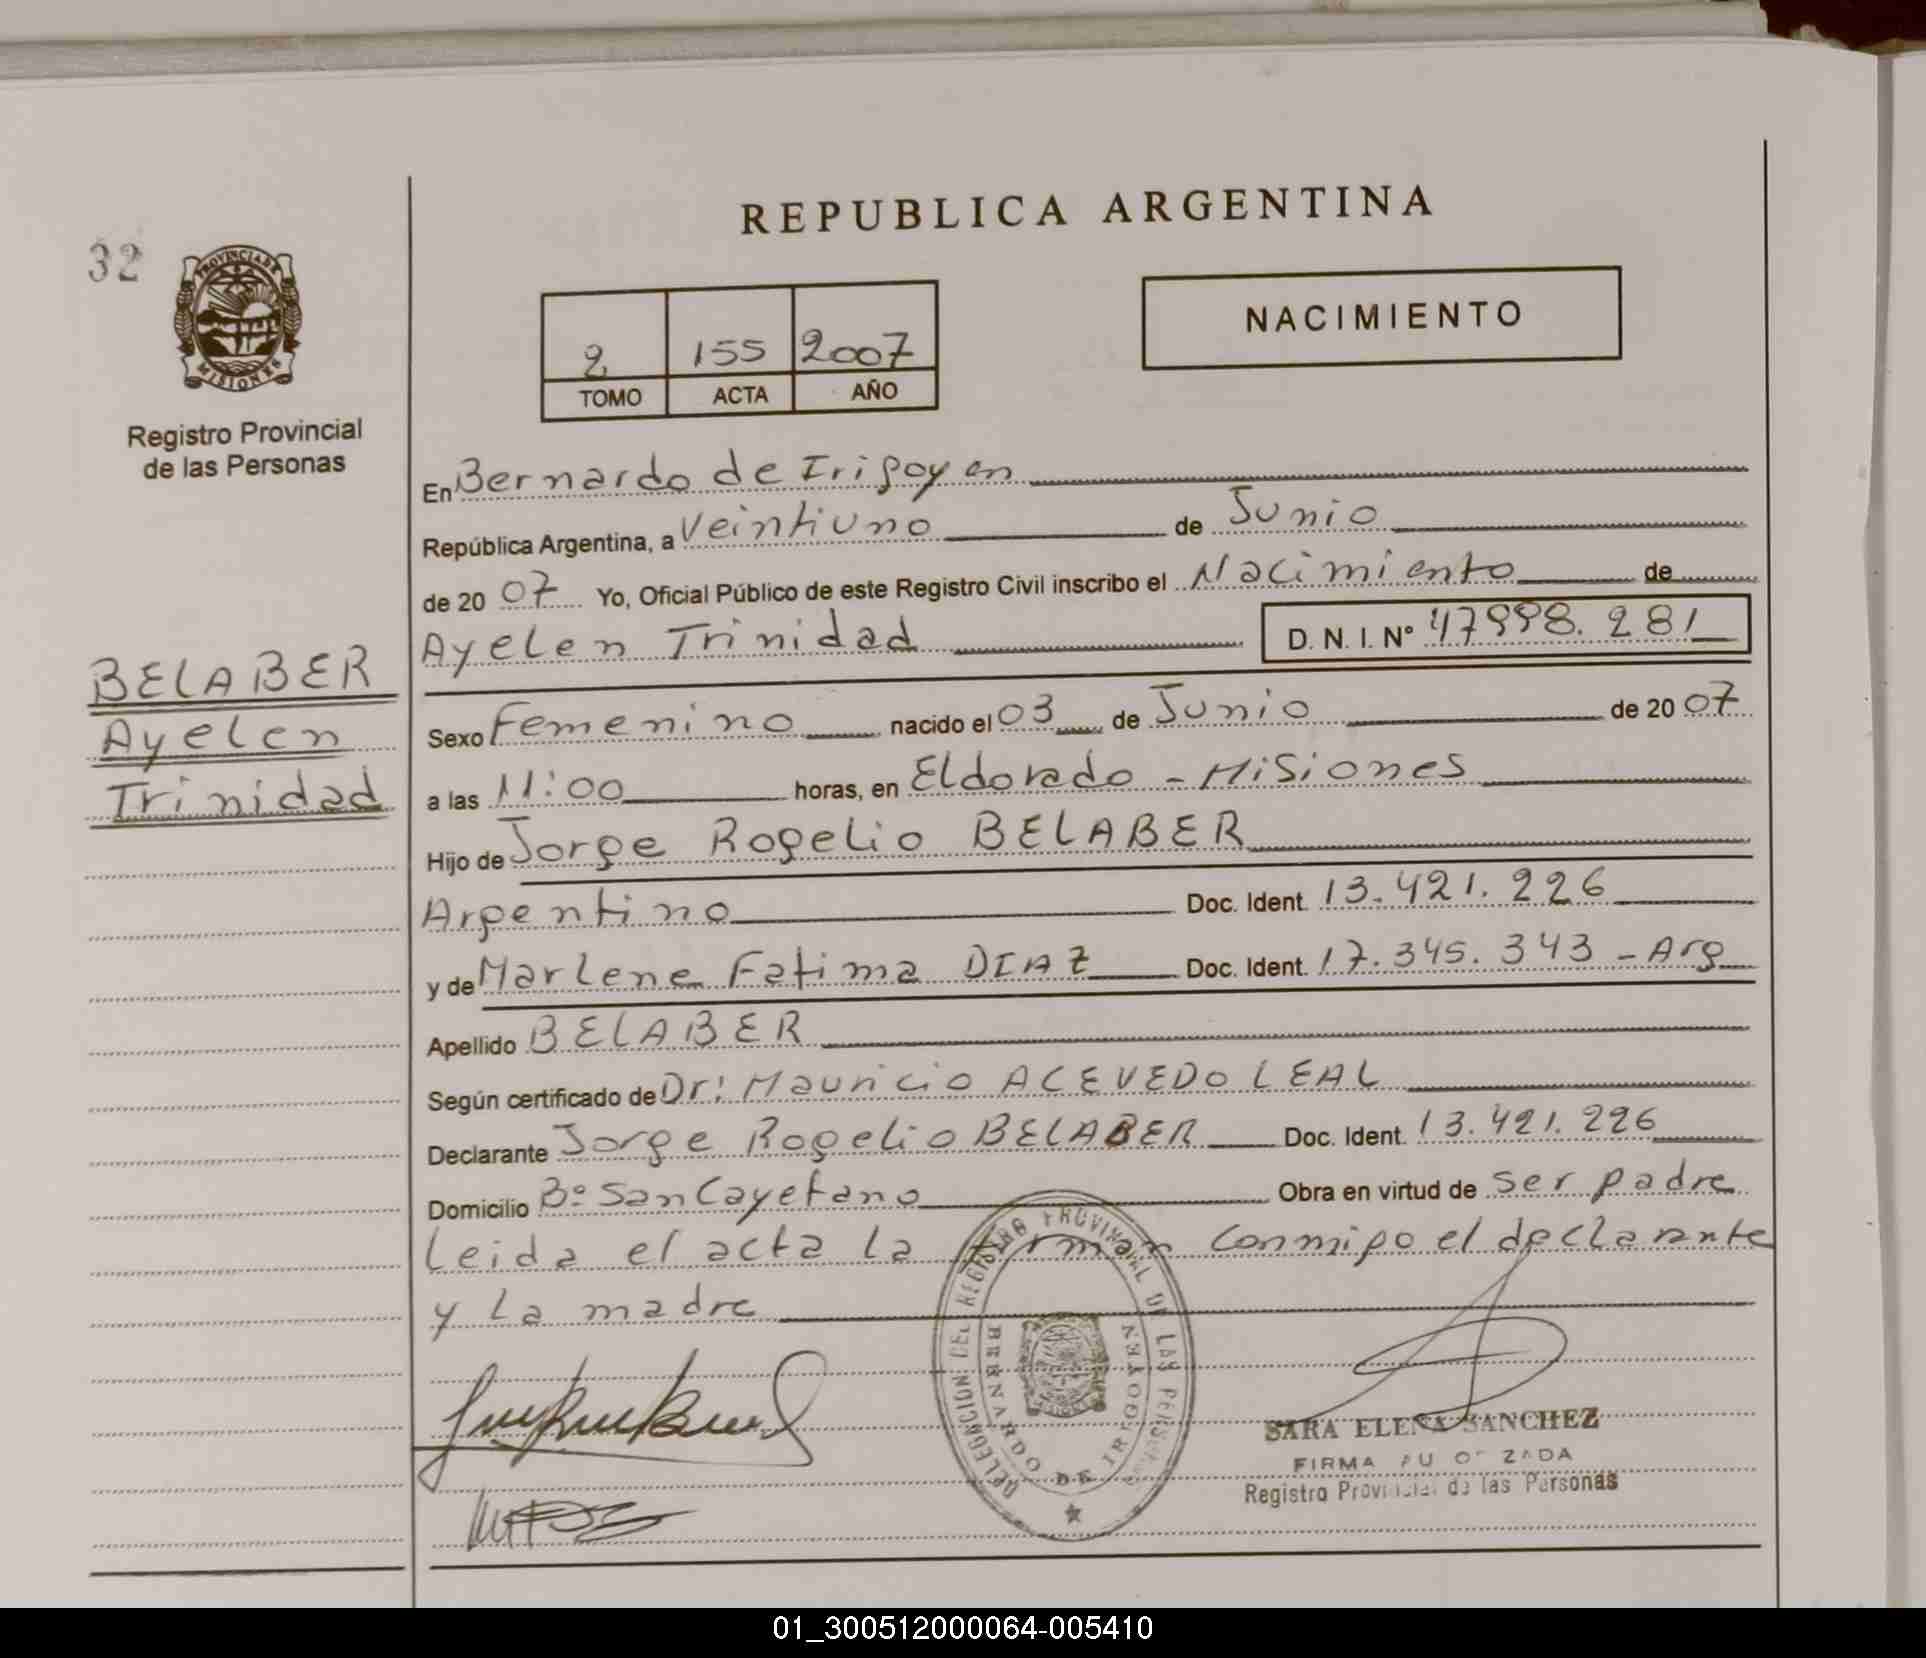 REPUBLICA ARGENTINA
32
PROVINCIA DE
MISIONES
Registro Provincial
de las Personas
NACIMIENTO
2 155 2007
TOMO ACTA AÑO
En Bernardo de Irigoyen
República Argentina, a Veintiuno de Junio
de 20 07 Yo, Oficial Público de este Registro Civil inscribo el Nacimiento de
Ayelen Trinidad D. N. I. N° 47998.281
BELABER
Ayelen
Trinidad
Sexo Femenino nacido el 03 de Junio de 20 07
a las 11:00 horas, en Eldorado - Misiones
Hijo de Jorge Rogelio BELABER
Argentino Doc. Ident. 13.421.226
y de Marlene Fatima DIAZ Doc. Ident. 17.345.343 - Arg
Apellido BELABER
Según certificado de Dr: Mauricio ACEVEDO LEAL
Declarante Jorge Rogelio BELABER Doc. Ident. 13.421.226
Domicilio B° San Cayetano Obra en virtud de ser padre
Leida el acta la firman conmigo el declarante
y la madre
DELEGACION DEL REGISTRO PROVINCIAL DE LAS PERSONAS
BERNARDO DE IRIGOYEN
SARA ELENA SANCHEZ
FIRMA AUTORIZADA
Registro Provincial de las Personas
01_300512000064-005410